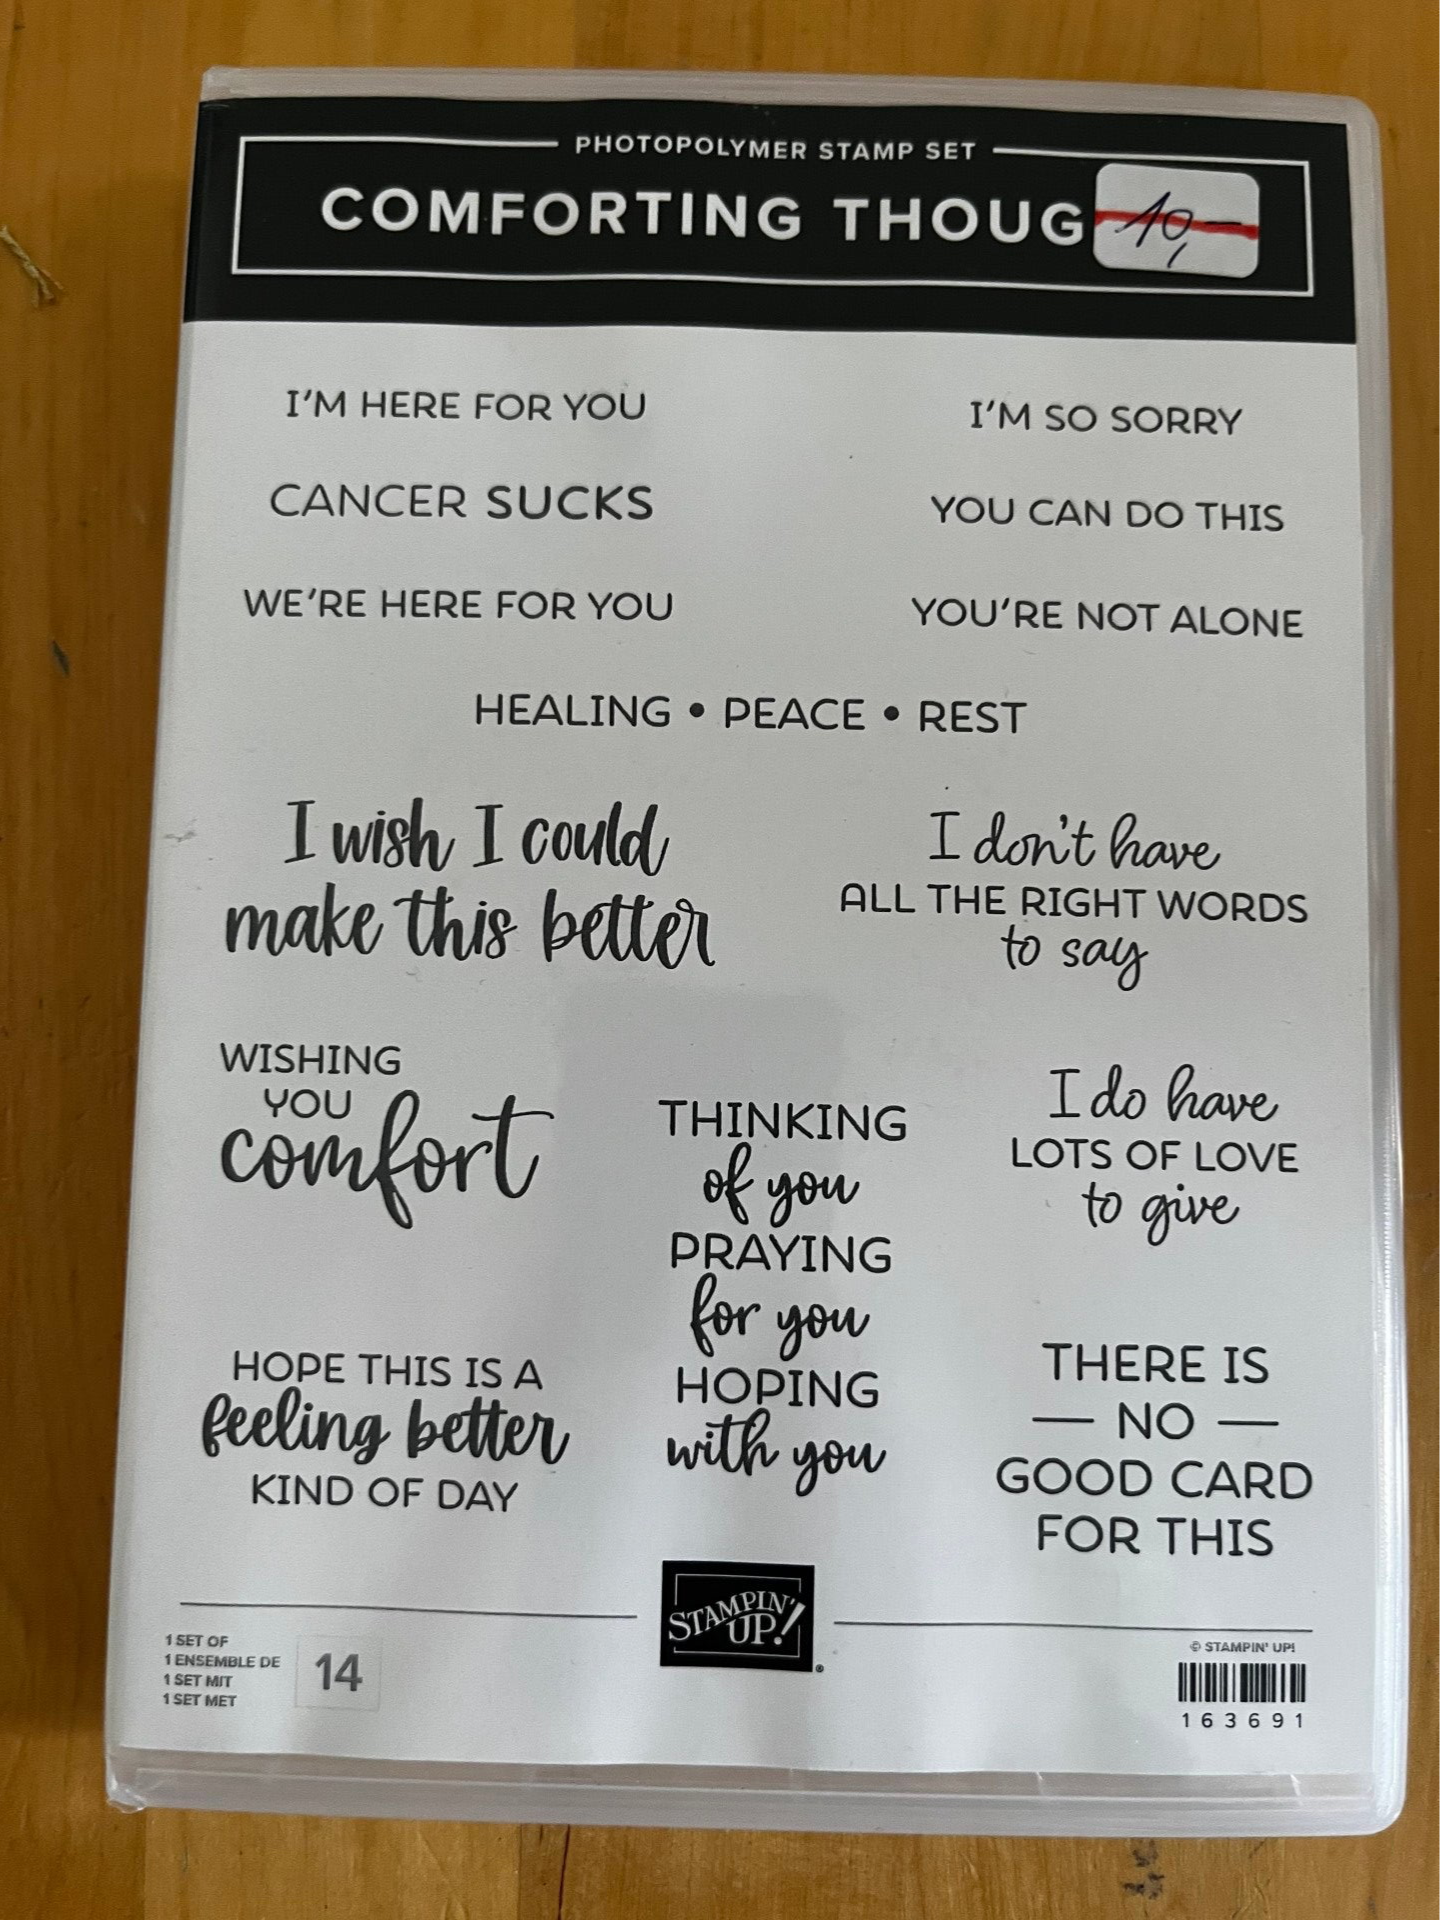 PHOTOPOLYMER STAMP SET
COMFORTING THOUG
10,-
I'M HERE FOR YOU
I'M SO SORRY
CANCER SUCKS
YOU CAN DO THIS
WE'RE HERE FOR YOU
YOU'RE NOT ALONE
HEALING • PEACE • REST
I wish I could
make this better
I don't have
ALL THE RIGHT WORDS
to say
WISHING
YOU
comfort
THINKING
of you
PRAYING
for you
HOPING
with you
I do have
LOTS OF LOVE
to give
HOPE THIS IS A
feeling better
KIND OF DAY
THERE IS
— NO —
GOOD CARD
FOR THIS
STAMPIN'
UP!®
1 SET OF
1 ENSEMBLE DE
1 SET MIT
1 SET MET
14
© STAMPIN' UP!
163691